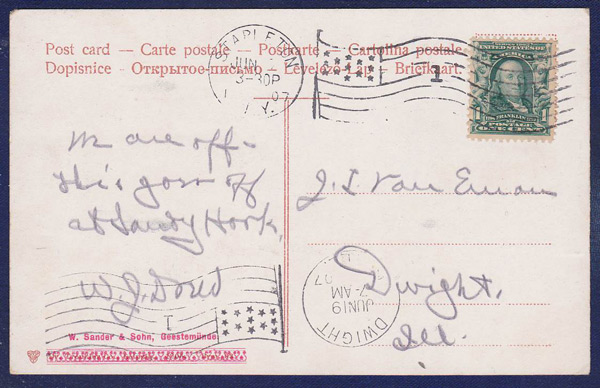 Post card — Carte postale — Postkarte — Cartolina postale
Dopisnice — Открытое письмо — Levelező-Lap — Briefkaart.
STAPLETON
JUN
3-30P
07
N.Y.
1
UNITED STATES OF AMERICA
FRANKLIN
POSTAGE
1 ONE CENT 1
We are off –
this goes off
at Sandy Hook.
W. J.
J. I. Van Eman
Dwight,
Ill.
DWIGHT
JUN 19
7-AM
07
1
W. Sander & Sohn, Geestemünde.